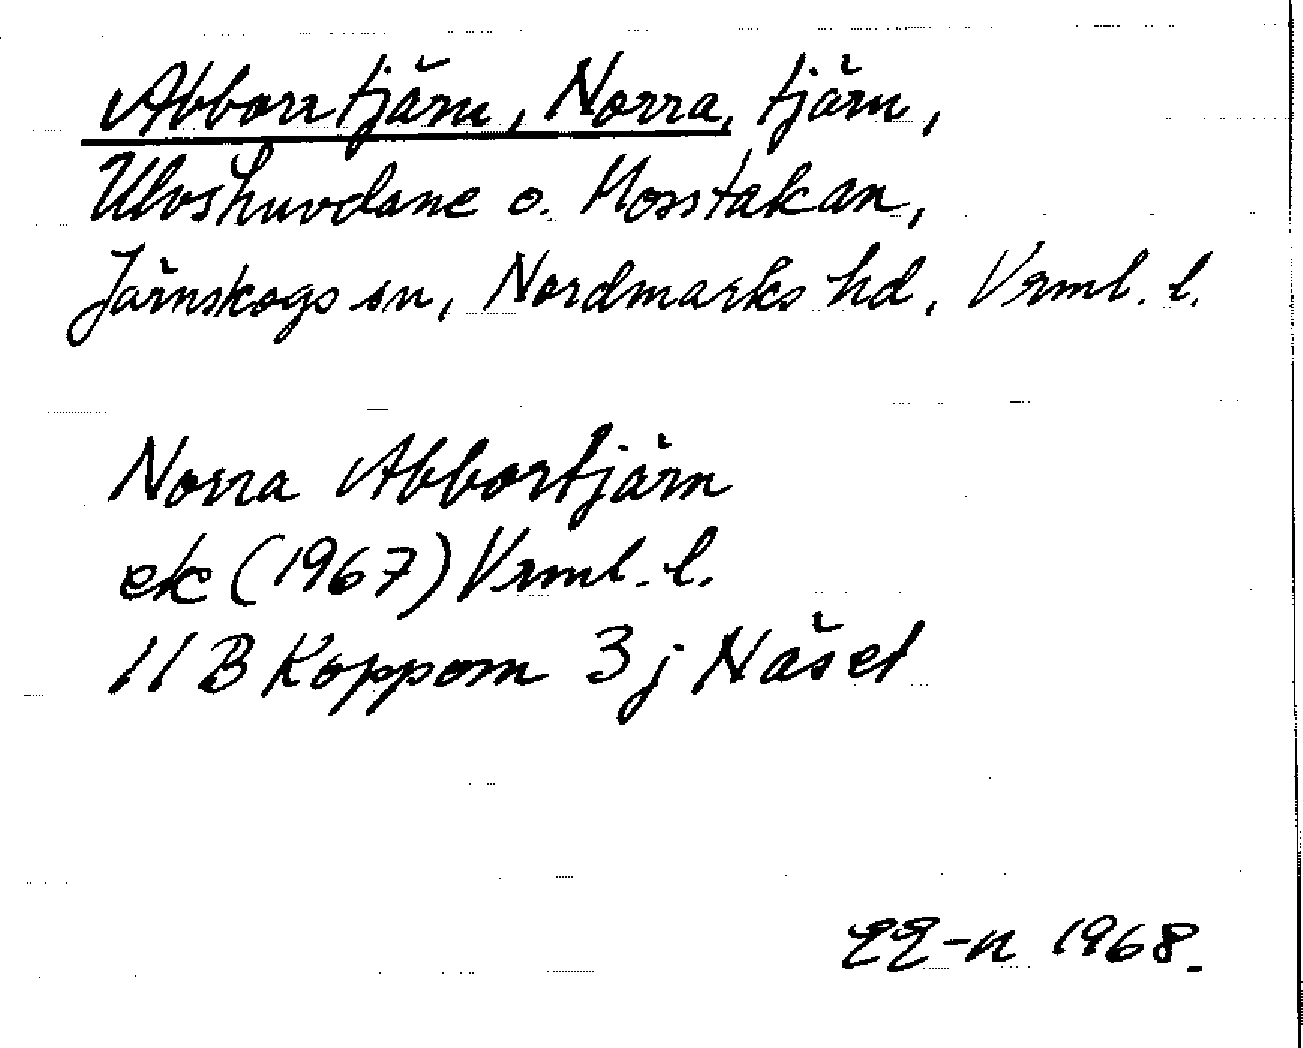 Abborrtjärn, Norra, tjärn,
Ulvshuvdane o. Morstakan,
Järnskogs sn, Nordmarks hd, Vrml. l.
Norra Abbortjärn
ek (1967) Vrml. l.
11 B Koppom 3 j Näset
EE-n 1968.